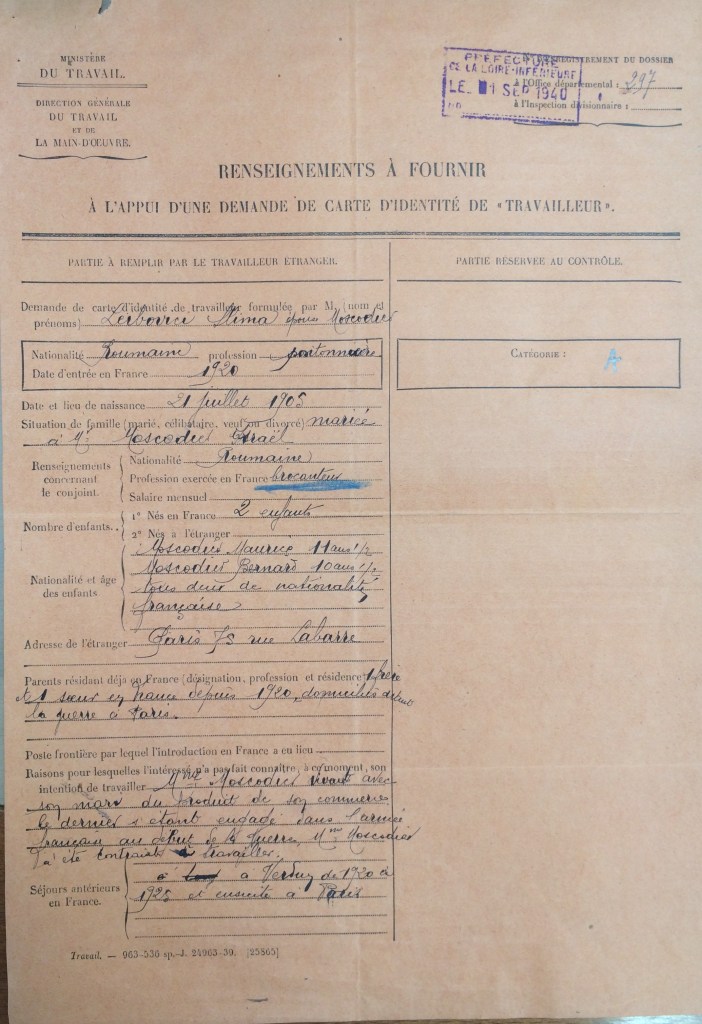 MINISTÈRE
DU TRAVAIL.
DIRECTION GÉNÉRALE
DU TRAVAIL
ET DE
LA MAIN-D'ŒUVRE.
PREFECTURE
DE LA LOIRE-INFÉRIEURE
LE 1 SEP 1940
REGISTREMENT DU DOSSIER
à l'Office départemental : 297
à l'Inspection divisionnaire :
RENSEIGNEMENTS À FOURNIR
À L'APPUI D'UNE DEMANDE DE CARTE D'IDENTITÉ DE « TRAVAILLEUR ».
PARTIE À REMPLIR PAR LE TRAVAILLEUR ÉTRANGER.
Demande de carte d'identité de travailleur formulée par M. (nom et
prénoms) Leibovici épouse Moscovici
Nationalité Roumaine profession
Date d'entrée en France 1920
Date et lieu de naissance 21 juillet 1905
Situation de famille (marié, célibataire, veuf ou divorcé) mariée
à Mr Moscovici Israël
Renseignements concernant le conjoint.
Nationalité Roumaine
Profession exercée en France brocanteur
Salaire mensuel
Nombre d'enfants..
1° Nés en France 2 enfants
2° Nés à l'étranger
Nationalité et âge des enfants
Moscovici Maurice 11 ans 1/2
Moscovici Bernard 10 ans 1/2
tous deux de nationalité
française
Adresse de l'étranger Paris 75 rue Labarre
Parents résidant déjà en France (désignation, profession et résidence) 1 frère
et 1 sœur en France depuis 1920, domiciliés
la guerre à Paris.
Poste frontière par lequel l'introduction en France a eu lieu
Raisons pour lesquelles l'intéressé n'a pas fait connaître, à ce moment, son
intention de travailler Mme Moscovici vivant avec
son mari du produit de son commerce
le dernier s'étant engagé dans l'armée
française au début de la Guerre, Mme Moscovici
a été contrainte travailler.
Séjours antérieurs en France.
à Verdun de 1920 à
1925 et ensuite à Paris
Travail. — 963-536 sp.-J. 24963-39. [25865]
PARTIE RÉSERVÉE AU CONTRÔLE.
CATÉGORIE : A